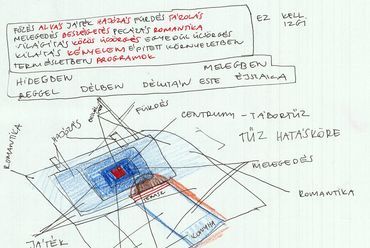 FŐZÉS ALVÁS JÁTÉK HAJÓZÁS FÜRDÉS FÁZOLÁS
MELEGEDÉS BESZÉLGETÉS PECÁZÁS ROMANTIKA
VILÁGÍTÁS KÖZÖS ÜCSÖRGÉS EGYEDÜL ÜCSÖRGÉS
KILÁTÁS KÉNYELEM ÉPÍTETT KÖRNYEZETBEN
TERMÉSZETBEN PROGRAMOK
EZ KELL
IZGI
HIDEGBEN MELEGBEN
REGGEL DÉLBEN DÉLUTÁN ESTE ÉJSZAKA
FÜRDÉS
HAJÓZÁS
CENTRUM - TÁBORTŰZ
TŰZ HATÁSKÖRE
ROMANTIKA
MELEGEDÉS
ROMANTIKA
KONYHA
JÁTÉK